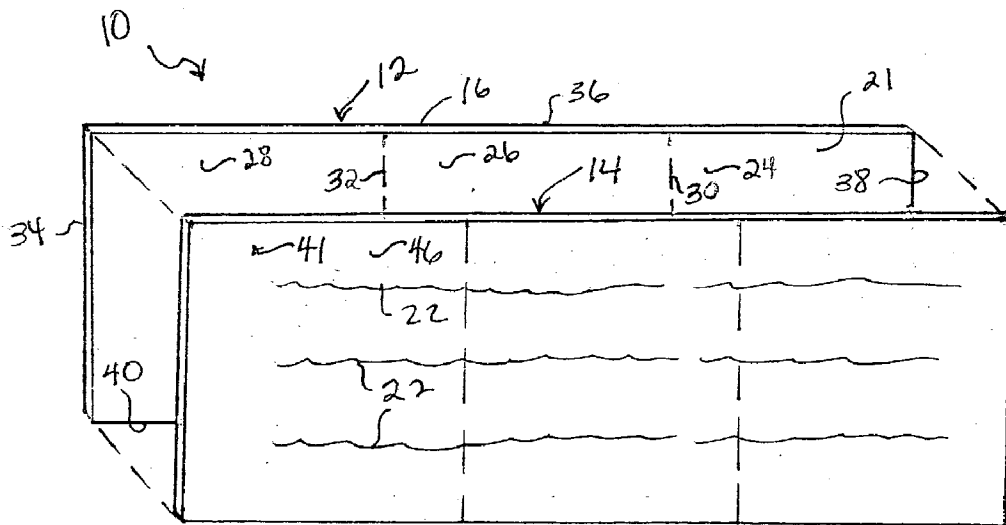 10
12
16
36
21
28
32
26
14
30
24
38
34
41
46
22
40
22